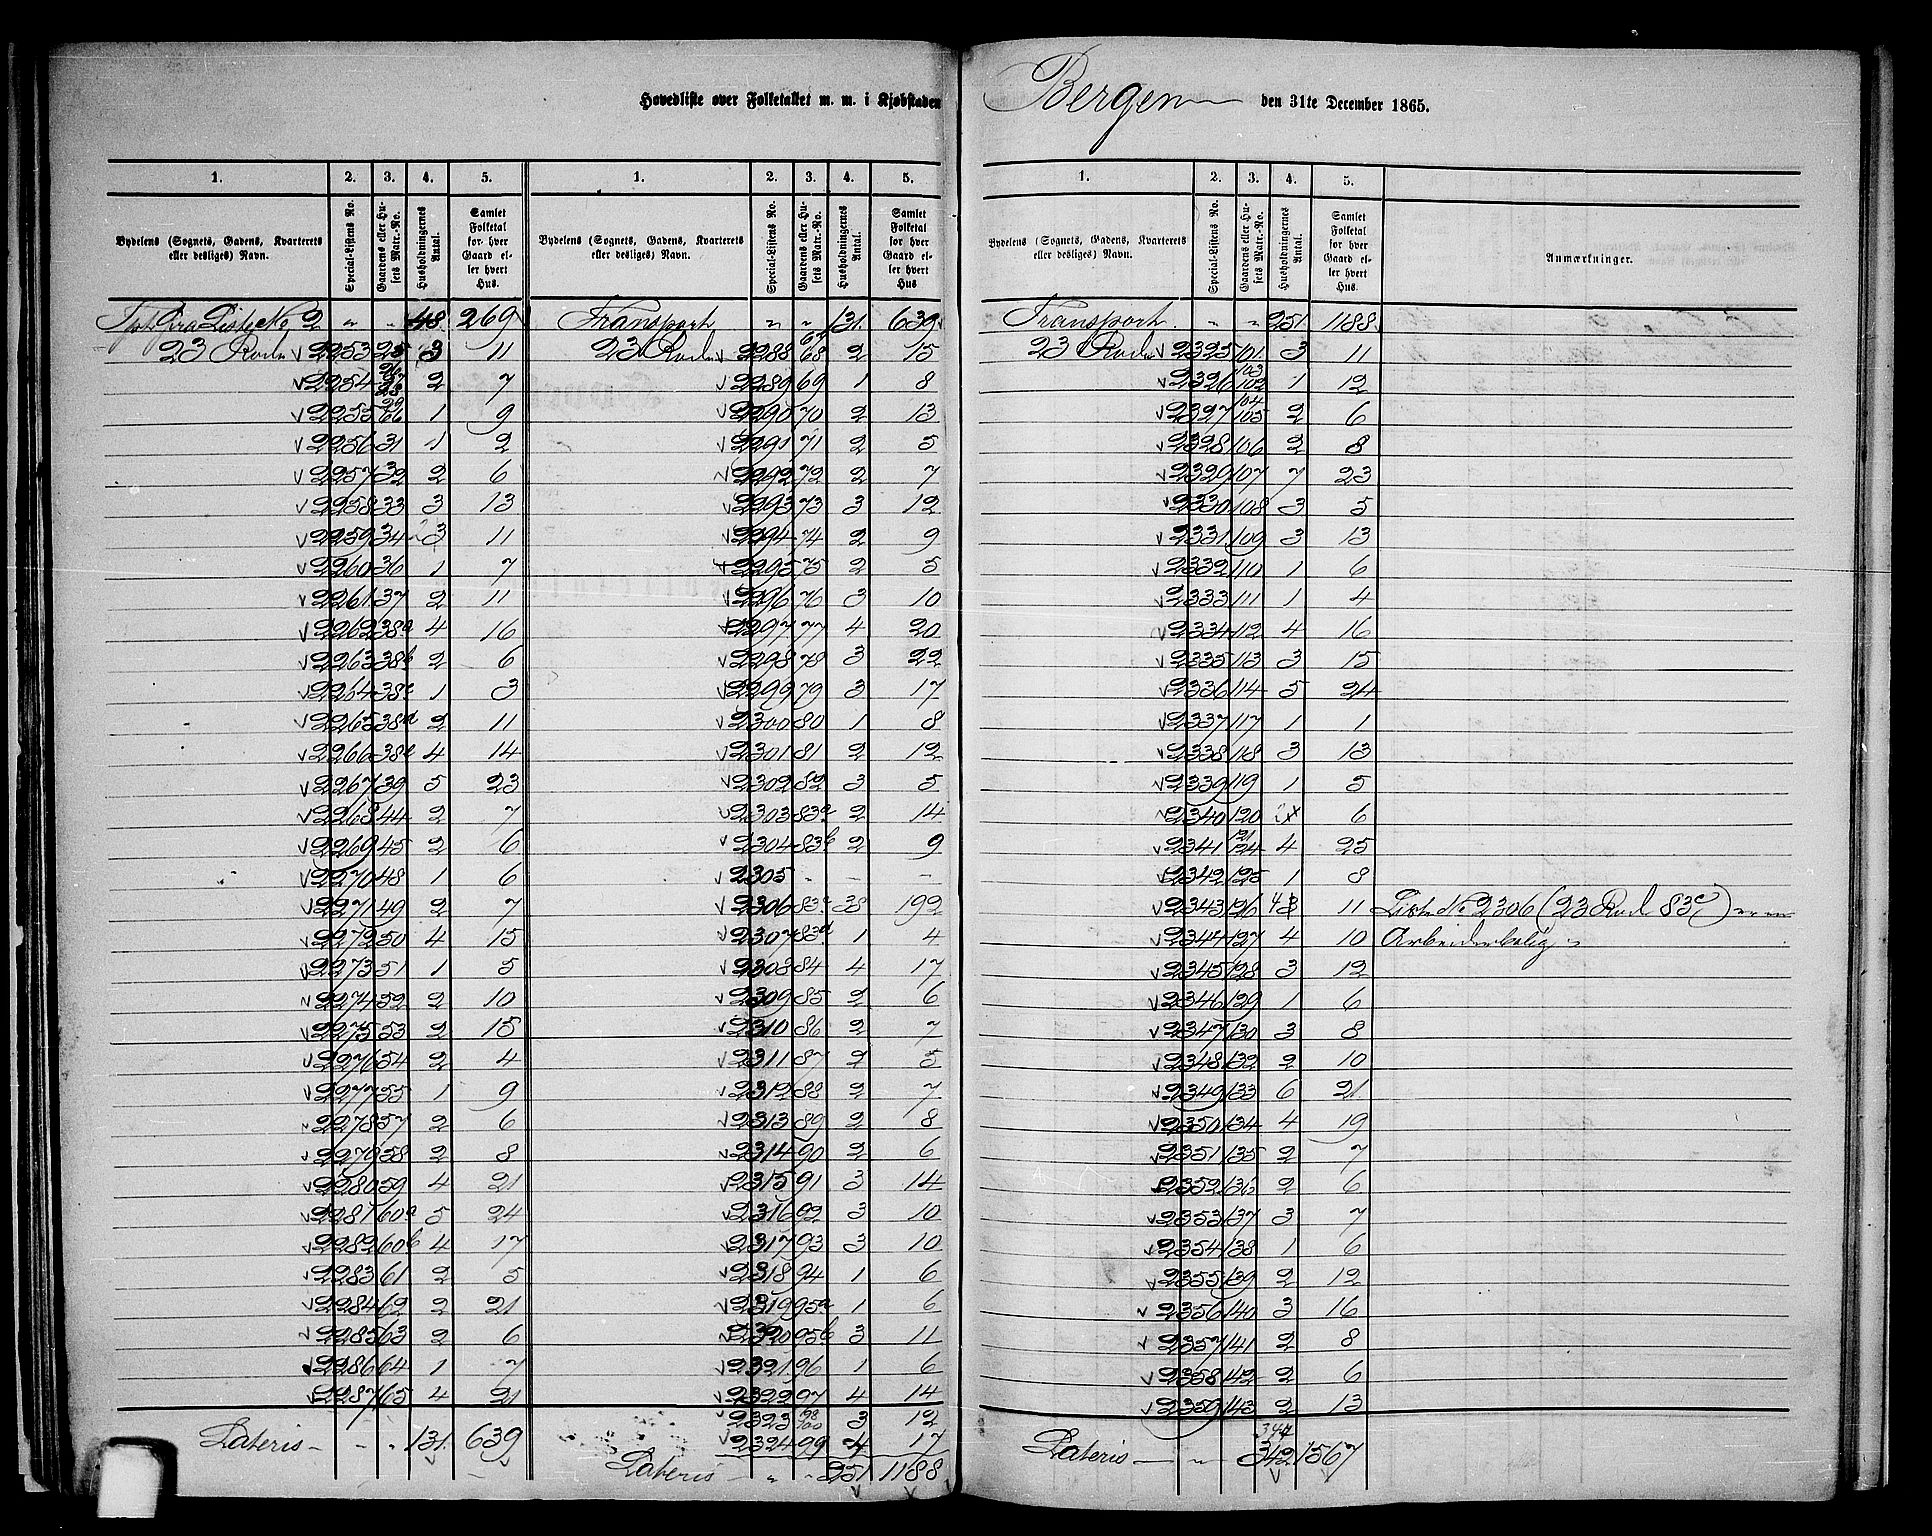 Hovedliste over Folketallet m. m. i Kjøbstaden Bergen den 31te December 1865.
1. 2. 3. 4. 5. 1. 2. 3. 4. 5. 1. 2. 3. 4. 5.
Bydelens (Sognets, Gadens, Kvarterets eller desliges) Navn. Special-Listens No. Gaardens eller Husets Matr.-No. Husholdningernes Antal. Samlet Folketal for hver Gaard eller hvert Hus. Bydelens (Sognets, Gadens, Kvarterets eller desliges) Navn. Special-Listens No. Gaardens eller Husets Matr.-No. Husholdningernes Antal. Samlet Folketal for hver Gaard eller hvert Hus Bydelens (Sognets, Gadens, Kvarterets eller desliges) Navn. Special-Listens No. Gaardens eller Husets Matr.-No. Husholdningernes Antal. Samlet Folketal for hver Gaard eller hvert Hus. Anmærkninger.
Tpt fra Liste No 2 " " 48 269 Transport " " 131. 639 Transport. " " 251 1188.
23 Rode 2253 25 3 11 23 Rode 2288 68 2 15 23 Rode 2325 101. 3 11
2254 2 7 2289 69 1 8 2326 103 102 1 12
2255 1 9 2290 70 2 13 2327 104 105 2 6
2256 31 1 2 2291 71 2 5 2328 106 2 8
2257 32 2 6 2292 72 2 7 2329 107 7 23
2258 33 3 13 2293 73 3 12 2330 108 3 5
2259 34 3 11 2294 74 2 9 2331 109 3 13
2260 36 1 7 2295 75 2 5 2332 110 1 6
2261 37 2 11 2296 76 3 10 2333 111 1 4
2262 38a 4 16 2297 77 4 20 2334 112 4 16
2263 38b 2 6 2298 78 3 22 2335 113 3 15
2264 38c 1 3 2299 79 3 17 2336 114 5 24
2265 38d 2 11 2300 80 1 8 2337 117 1 1
2266 38e 4 14 2301 81 2 12 2338 118 3 13
2267 39 5 23 2302 82 3 5 2339 119 1 5
2268 44 2 7 2303 83a 2 14 2340 120 6
2269 45 2 6 2304 83b 2 9 2341 121 124 4 25
2270 48 1 6 2305 - - - 2342 125 1 8
2271 49 2 7 2306 83c 38 192 2343 126 11 Liste No 2306 (23 Rode 83c) er en
2272 50 4 15 2307 83d 1 4 2344 127 4 10 Arbeiderbolig
2273 51 1 5 2308 84 4 17 2345 128 3 12
2274 52 2 10 2309 85 2 6 2346 129 1 6
2275 53 2 15 2310 86 2 7 2347 130 3 8
2276 54 2 4 2311 87 2 5 2348 132 2 10
2277 55 1 9 2312 88 2 7 2349 133 6 21
2278 57 2 6 2313 89 2 8 2350 134 4 19
2279 58 2 8 2314 90 2 6 2351 135 2 7
2280 59 4 21 2315 91 3 14 2352 136 2 6
2281 60a 5 24 2316 92 3 10 2353 137 3 7
2282 60b 4 17 2317 93 3 10 2354 138 1 6
2283 61 2 5 2318 94 1 6 2355 139 2 12
2284 62 2 21 2319 95a 1 6 2356 140 3 16
2285 63 2 6 2320 95b 3 11 2357 141 2 8
2286 64 1 7 2321 96 1 6 2358 142 2 6
2287 65 4 21 2322 97 4 14 2359 143 2 13
2323 98 100 3 12
2324 99 4 17
Lateris - - 131. 639 Lateris - " 251 1188 Lateris - " 344 342 1567